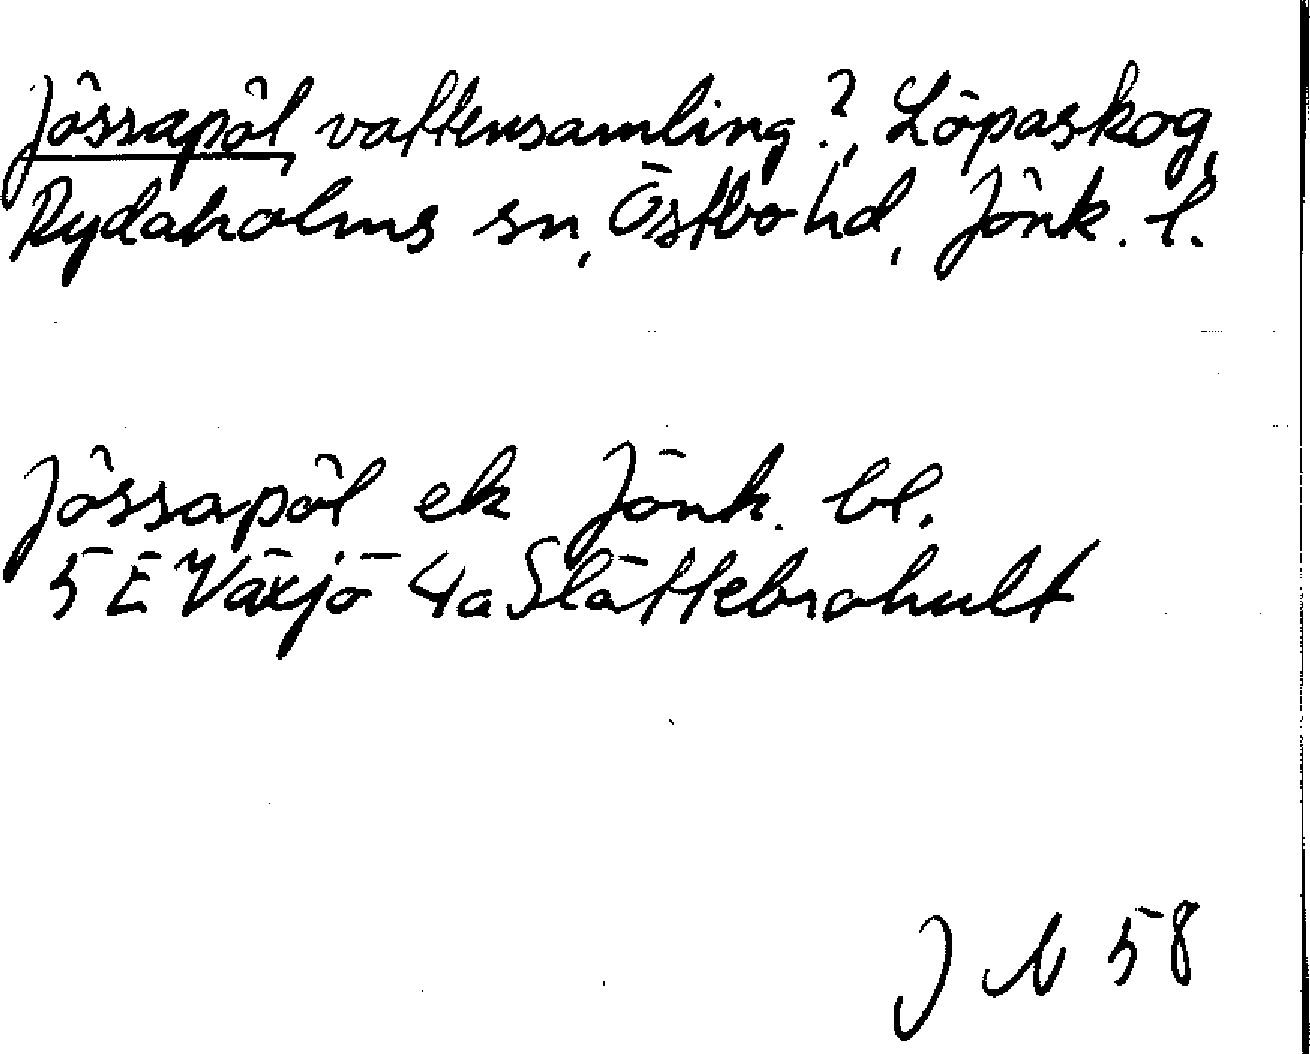 Jössapöl, vattensamling?, Löpaskog,
Rydaholms sn, Östbo hd, Jönk. l.
Jössapöl ek Jönk. bl.
5 E Växjö 4a Slättebrohult
J N 58